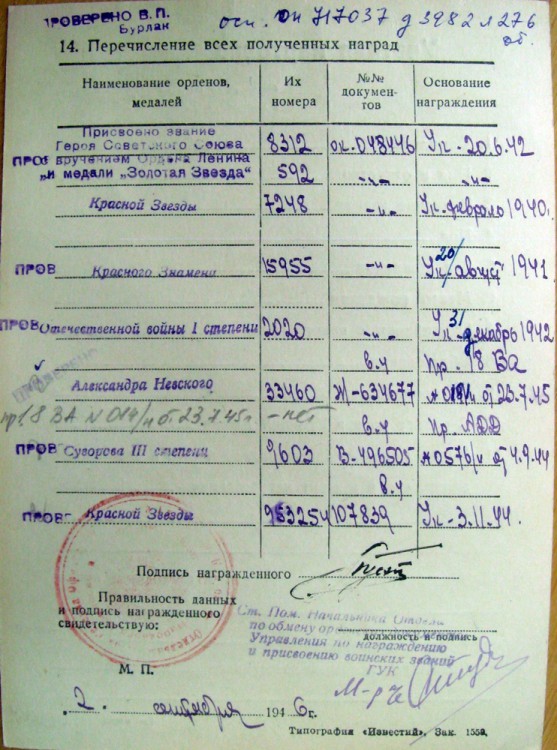 ПРОВЕРЕНО В. П.
Бурлак
осн. ОИ 717037 д 3982 л 276
об.
14. Перечисление всех полученных наград
Наименование орденов, медалей Их номера №№ документов Основание награждения
Присвоено звание
Героя Советского Союза 8312 ок-048446 Ук-20.6.42
ПРОВ с вручением Ордена Ленина
и медали „Золотая Звезда“ 592 -„- -„-
Красной Звезды 7248 -„- Ук-февраль 1940г.
ПРОВ Красного Знамени 15955 -„- Ук 20/август 1941
ПРОВ Отечественной войны I степени 2020 -„- Ук 31 декабрь 1942
в.ч Пр. 18 ВА
Александра Невского 33460 Ж-634677 №019/н от 23.7.45
пр 18 ВА N 019/н от 23.7.45г -нет в.ч Пр. АДД
ПРОВ Суворова III степени 9603 В-496505 №0576/н от 4.9.44
в.ч
ПРОВ Красной Звезды 953254 107839 Ук-3.11.44.
Подпись награжденного
Правильность данных
и подпись награжденного
свидетельствую:
Ст. Пом. Начальника Отдела
по обмену
должность и подпись
Управления по награждению
и присвоению воинских званий
ГУК
М-р
М. П.
„2„ сентября 1946г.
Типография «Известий». Зак. 1559.